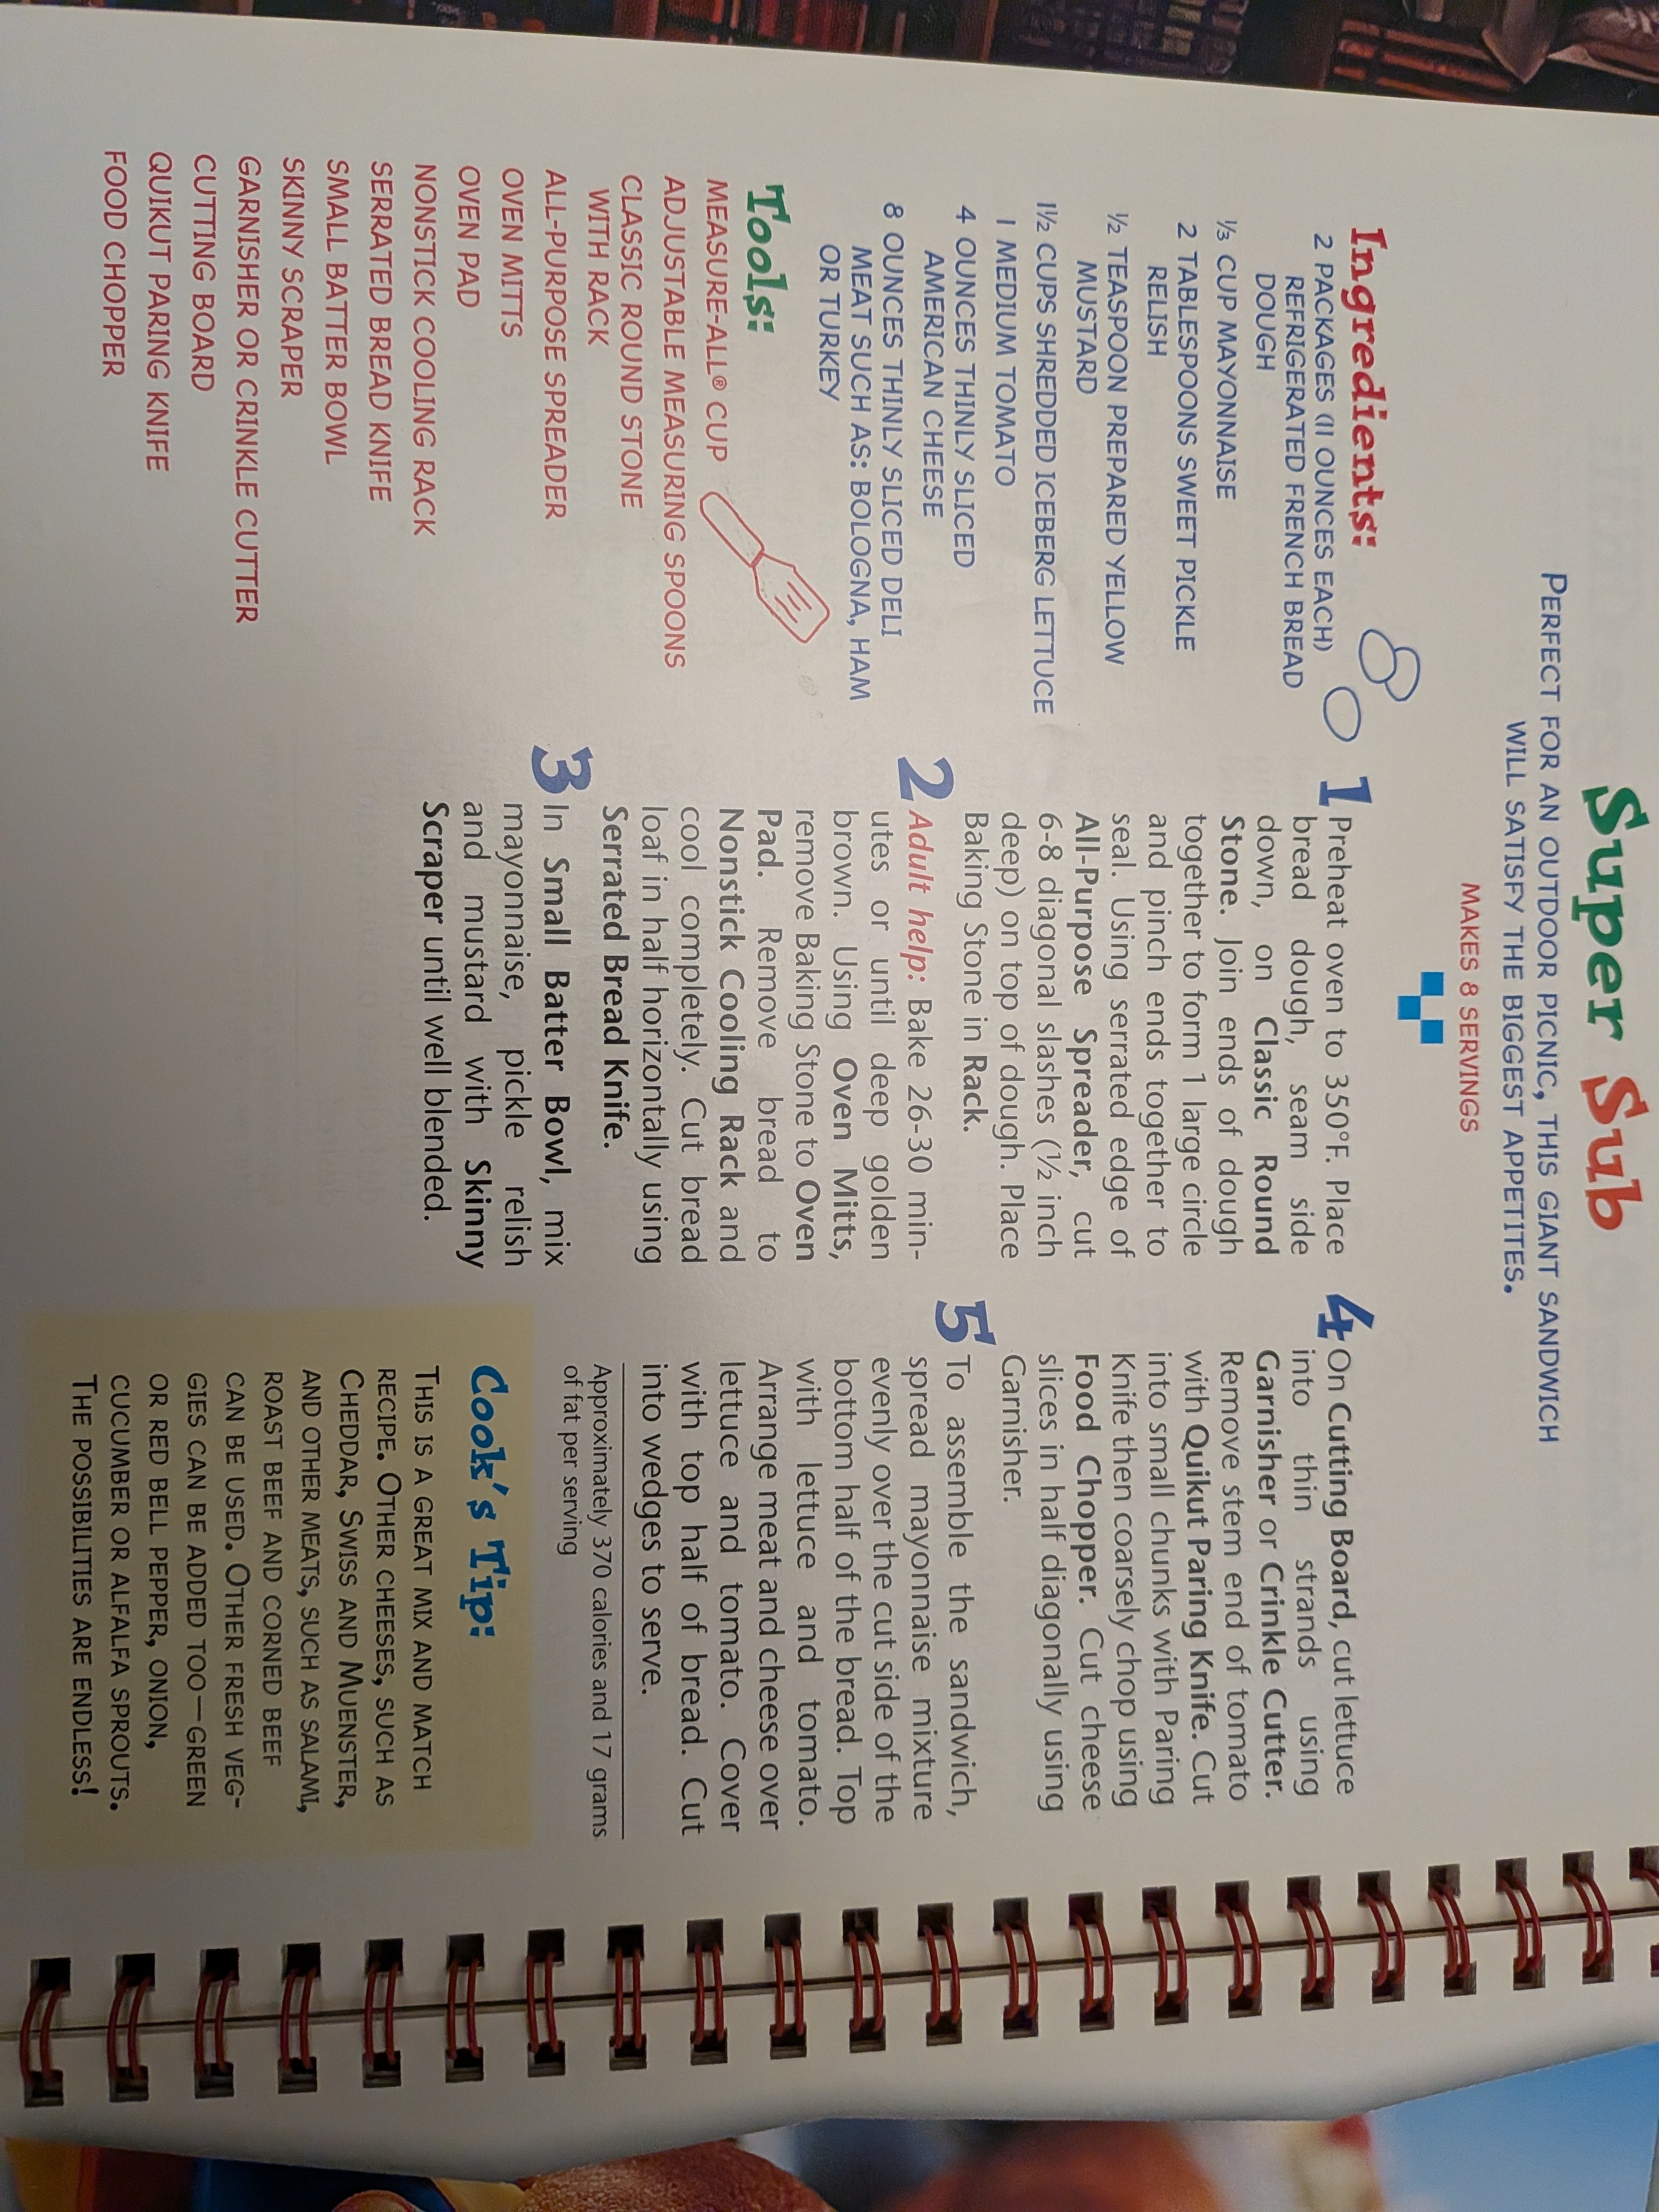 Super Sub
PERFECT FOR AN OUTDOOR PICNIC, THIS GIANT SANDWICH
WILL SATISFY THE BIGGEST APPETITES.
MAKES 8 SERVINGS
Ingredients:
2 PACKAGES (11 OUNCES EACH)
REFRIGERATED FRENCH BREAD
DOUGH
⅓ CUP MAYONNAISE
2 TABLESPOONS SWEET PICKLE
RELISH
½ TEASPOON PREPARED YELLOW
MUSTARD
1½ CUPS SHREDDED ICEBERG LETTUCE
1 MEDIUM TOMATO
4 OUNCES THINLY SLICED
AMERICAN CHEESE
8 OUNCES THINLY SLICED DELI
MEAT SUCH AS: BOLOGNA, HAM
OR TURKEY
Tools:
MEASURE-ALL® CUP
ADJUSTABLE MEASURING SPOONS
CLASSIC ROUND STONE
WITH RACK
ALL-PURPOSE SPREADER
OVEN MITTS
OVEN PAD
NONSTICK COOLING RACK
SERRATED BREAD KNIFE
SMALL BATTER BOWL
SKINNY SCRAPER
GARNISHER OR CRINKLE CUTTER
CUTTING BOARD
QUIKUT PARING KNIFE
FOOD CHOPPER
1 Preheat oven to 350°F. Place
bread dough, seam side
down, on Classic Round
Stone. Join ends of dough
together to form 1 large circle
and pinch ends together to
seal. Using serrated edge of
All-Purpose Spreader, cut
6-8 diagonal slashes (½ inch
deep) on top of dough. Place
Baking Stone in Rack.
2 Adult help: Bake 26-30 min-
utes or until deep golden
brown. Using Oven Mitts,
remove Baking Stone to Oven
Pad. Remove bread to
Nonstick Cooling Rack and
cool completely. Cut bread
loaf in half horizontally using
Serrated Bread Knife.
3 In Small Batter Bowl, mix
mayonnaise, pickle relish
and mustard with Skinny
Scraper until well blended.
4 On Cutting Board, cut lettuce
into thin strands using
Garnisher or Crinkle Cutter.
Remove stem end of tomato
with Quikut Paring Knife. Cut
into small chunks with Paring
Knife then coarsely chop using
Food Chopper. Cut cheese
slices in half diagonally using
Garnisher.
5 To assemble the sandwich,
spread mayonnaise mixture
evenly over the cut side of the
bottom half of the bread. Top
with lettuce and tomato.
Arrange meat and cheese over
lettuce and tomato. Cover
with top half of bread. Cut
into wedges to serve.
Approximately 370 calories and 17 grams
of fat per serving
Cook's Tip:
THIS IS A GREAT MIX AND MATCH
RECIPE. OTHER CHEESES, SUCH AS
CHEDDAR, SWISS AND MUENSTER,
AND OTHER MEATS, SUCH AS SALAMI,
ROAST BEEF AND CORNED BEEF
CAN BE USED. OTHER FRESH VEG-
GIES CAN BE ADDED TOO—GREEN
OR RED BELL PEPPER, ONION,
CUCUMBER OR ALFALFA SPROUTS.
THE POSSIBILITIES ARE ENDLESS!